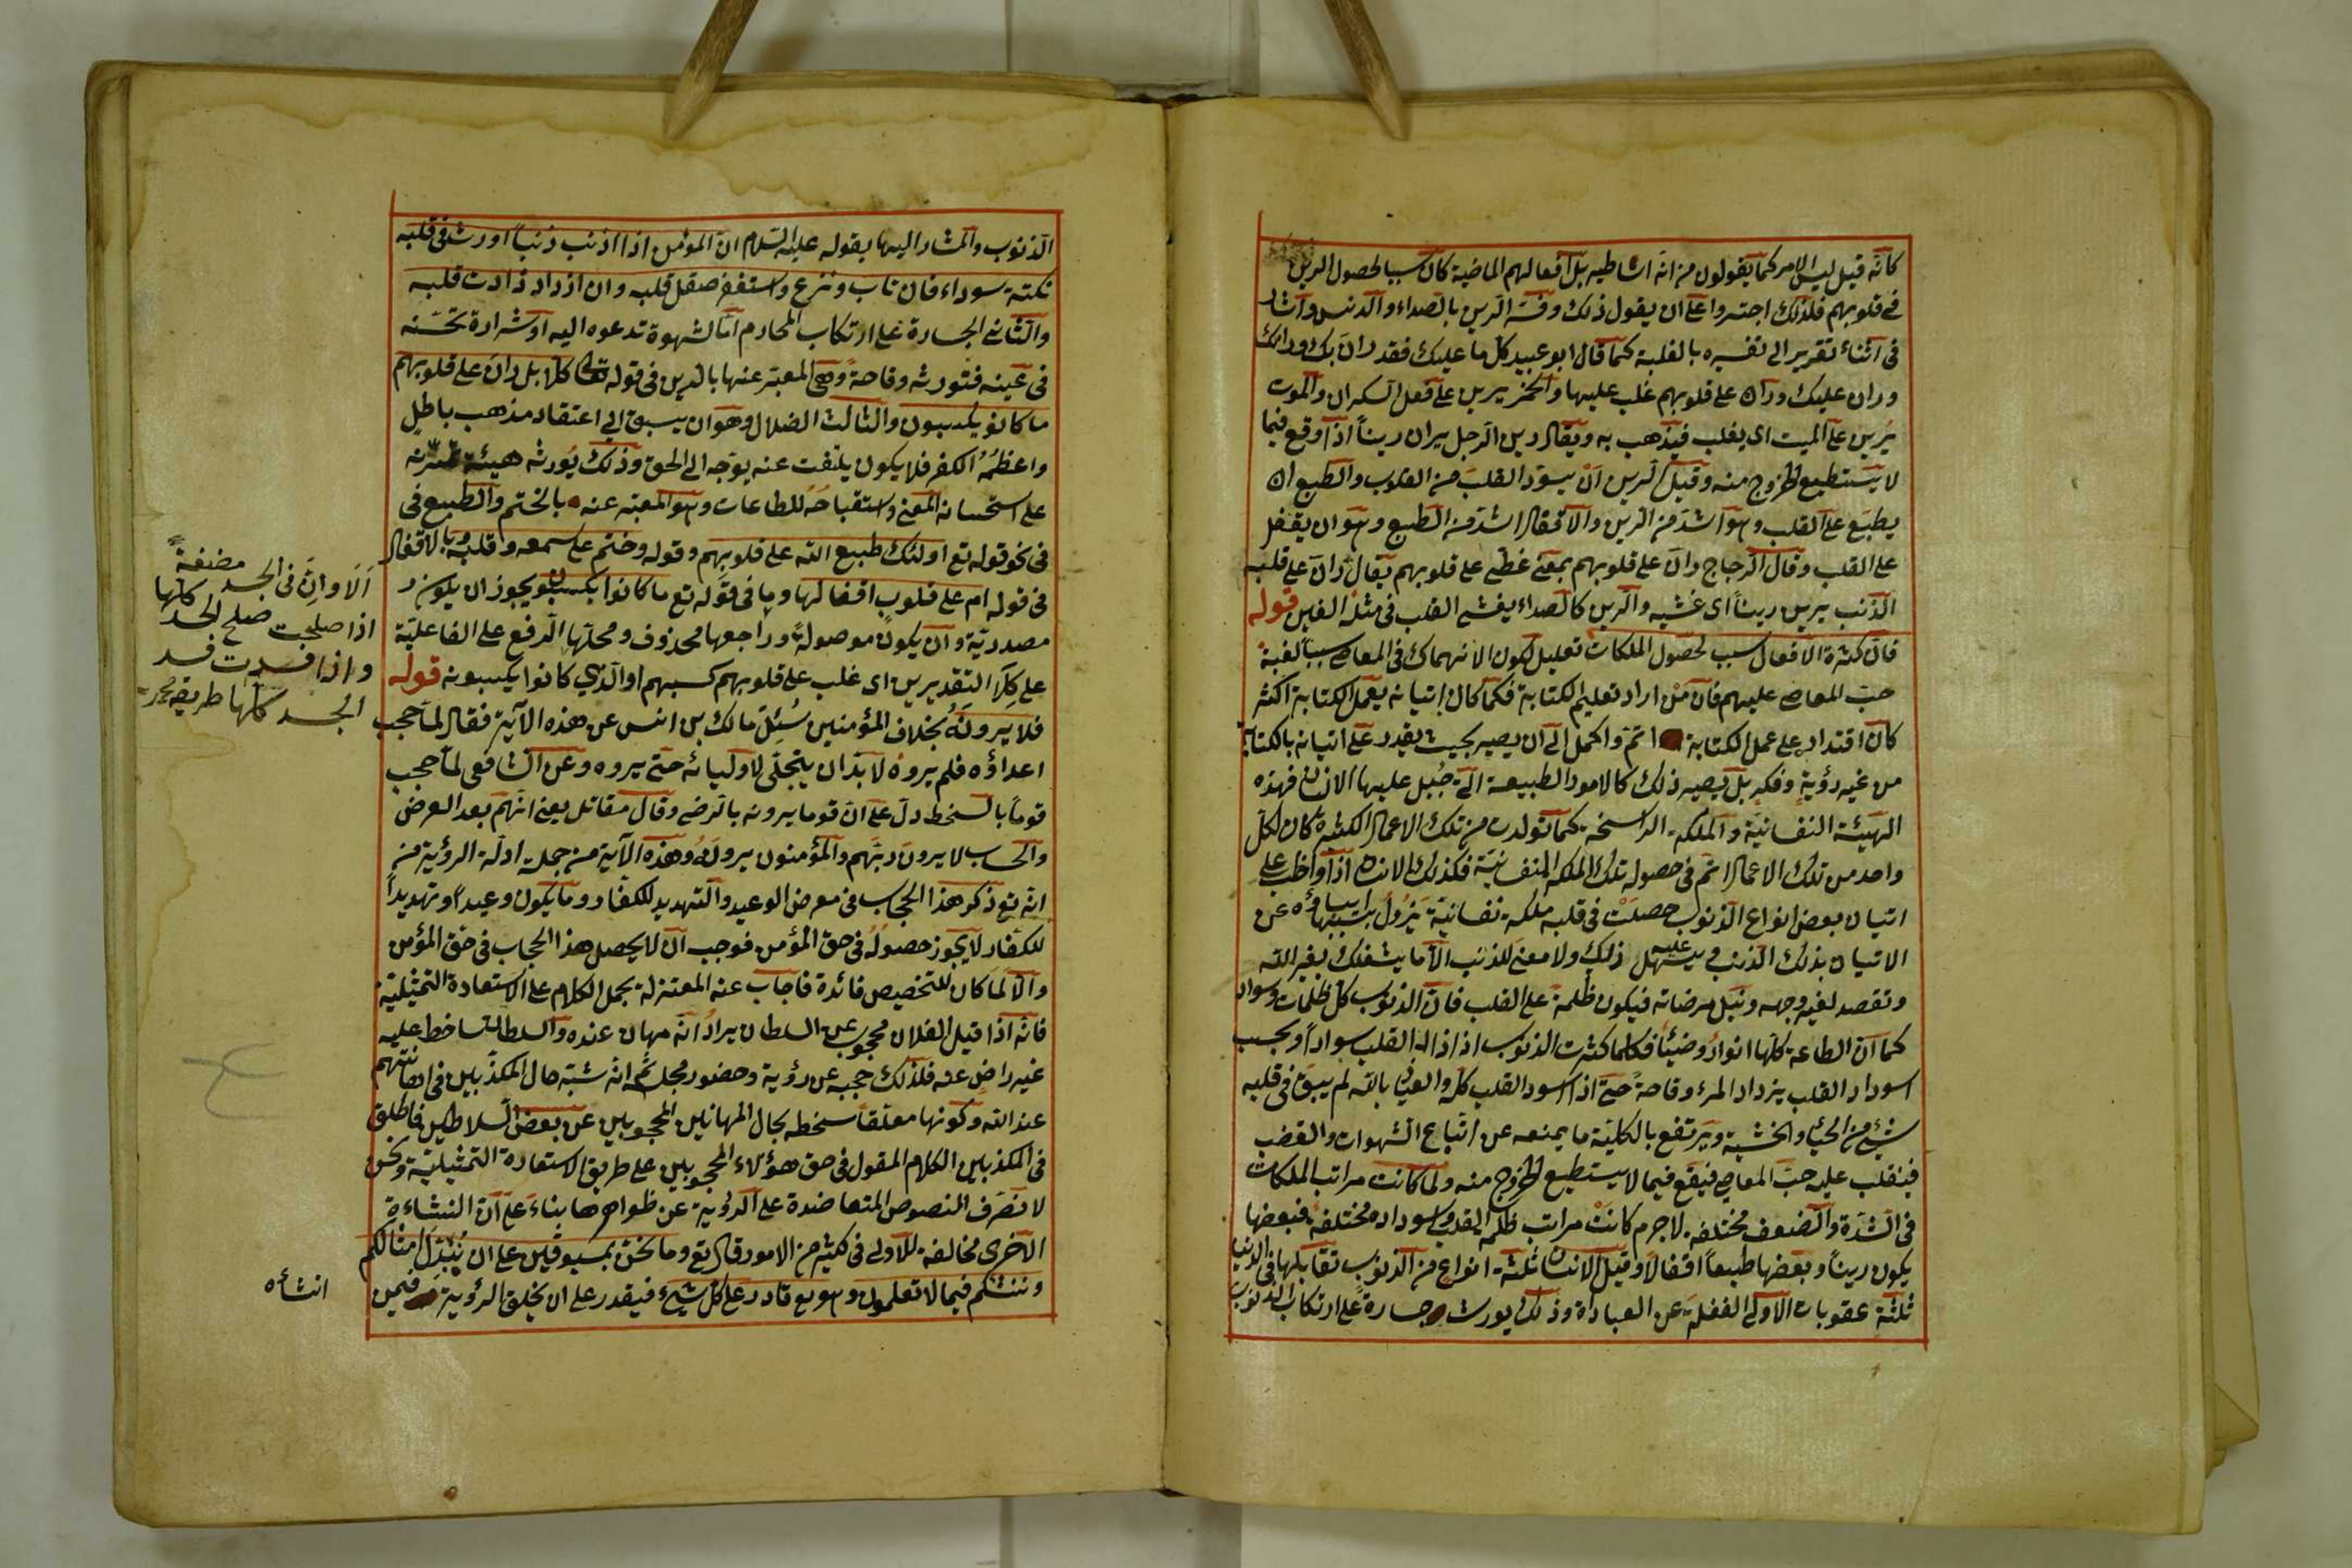 كانه قيل ليس الامر كما يقولون من انه اساطير بل افعالهم الماضية كان سببا لحصول الرين
في قلوبهم فلذلك اجتروا على ان يقول ذلك وفسر الرين بالصداء والدنس واشار
في اثناء تقرير الى تفسيره بالغلبة كما قال ابو عبيد كل ما غلبك فقد ران بك ورانك
وران عليك وران على قلوبهم غلب عليها والخمر يرين على عقل السكران والموت
يرين على الميت اى يغلب فيذهب به ويقال رين الرجل يران رينا اذا وقع فيما
لا يستطيع الخروج منه وقيل الرين ان يسود القلب من الذنوب والطبع ان
يطبع على القلب وهو اشد من الرين والاقفال اشد من الطبع وهو ان يقفل
على القلب وقال الزجاج ران على قلوبهم بمعنى غطى على قلوبهم يقال ران على قلبه
الذنب يرين رينا اى غشيه والرين كالصداء يغشى القلب في مثله الغين قوله
فان كثرة الافعال سبب لحصول الملكات تعليل لكون الانهماك في المعاصى سببا لغلبة
حب المعاصى عليهم فان من اراد تعليم الكتابة فكما كان اتيانه بعمل الكتابة اكثر
كان اقتداره على عمل الكتابة اتم واكمل الى ان يصير بحيث يقدر على اتيانه بالكتابة
من غير رؤية وفكر بل يصير ذلك كالامور الطبيعية التى جبل عليها الانسان فهذه
الهيئة النفسانية والملكة الراسخة كما تولدت من تلك الاعمال الكثيرة كان لكل
واحد من تلك الاعمال اثر في حصول تلك الملكة النفسانية فكذلك الانسان اذا واظب على
اتيان بعض انواع الذنوب حصلت في قلبه ملكة نفسانية يزول بسببها اباؤه عن
الاتيان بذلك الذنب ويسهل عليه ذلك ولا معنى للذنب الا ما يشغلك بغير الله
وتقصد لغير وجهه ونيل مرضاته فيكون ظلمة على القلب فان الذنوب كل ظلمات وسواد
كما ان الطاعة كلها انوار وضياء فكلما كثرت الذنوب اذ اذاله القلب سوادا وبحسب
اسوداد القلب يزداد المرء وقاحة حتى اذا اسود القلب كله والعياذ بالله لم يبق في قلبه
شىء من الحياء والخشية ويرتفع بالكلية ما يمنعه عن اتباع الشهوات والغضب
فينقلب عليه حب المعاصى فيقع فيما لا يستطيع الخروج منه ولما كانت مراتب الملكات
في الشدة والضعف مختلفة لاجرم كانت مراتب ظلمة القلب واسوداده مختلفة فبعضها
يكون رينا وبعضها طبعا اقفالا وقيل الانسان ثلثة انواع من الذنوب تقابلها في الدنيا
ثلثة عقوبات الاولى الغفلة عن العبادة وذلك يورث جسارة على ارتكاب الذنوب
الذنوب والمشار اليها بقوله عليه السلام ان المؤمن اذا اذنب ذنبا اورث في قلبه
نكتة سوداء فان تاب ونزع واستغفر صقل قلبه وان ازداد زادت قلبه
والثانى الجسارة على ارتكاب المحارم اما لشهوة تدعوه اليه او شرارة تحسنه
في عينه فتورثه وقاحة وهى المعبر عنها بالرين في قوله تعالى كلا بل ران على قلوبهم
ما كانو يكسبون والثالث الضلال وهو ان يسبق الى اعتقاد مذهب باطل
واعظمه الكفر فلا يكون يلتفت عنه بوجه الى الحق وذلك يورثه هيئة تمرنه
على استحسانه المعنى واستقباحه للطاعات وهو المعبر عنه بالختم والطبع في
في نحو قوله تع اولئك طبع الله على قلوبهم وقوله وختم على سمعه وقلبه وبالاقفال
في قوله ام على قلوب اقفالها وما في قوله تع ما كانوا يكسبون ويجوز ان يكون
مصدرية وان يكون موصولة وراجعها محذوف ومحلها الرفع على الفاعلية
على كلا التقديرين اى غلب على قلوبهم كسبهم او الذي كانوا يكسبونه قوله
فلا يرونه بخلاف المؤمنين سئل مالك بن انس عن هذه الآية فقال لما حجب
اعداؤه فلم يروه لا بد ان يتجلى لاوليائه حتى يروه وعن الشافعى لما حجب
قوما بالسخط دل على ان قوما يرونه بالرضى وقال مقاتل يعنى انهم بعد العرض
والحساب لا يرون ربهم والمؤمنون يرونه وهذه الآية من جملة ادلة الرؤية من
انه تع ذكر هذا الحجاب في معرض الوعيد والتهديد للكفار وما يكون وعيدا وتهديدا
للكفار لا يجوز حصوله في حق المؤمن فوجب ان لا يحصل هذا الحجاب في حق المؤمن
والا لما كان للتخصيص فائدة فاجاب عنه المعتزلة بحمل الكلام على الاستعارة التمثيلية
فانه اذا قيل الفلان محجوب عن السلطان يراد انه مهان عنده والسلطان ساخط عليه
غير راض عنه فلذلك حجبه عن رؤية وحضور مجلسه انه شبه حال المكذبين في اهانتهم
عند الله وكونها معلقا سخطه بحال المهانين المحجوبين عن بعض السلاطين فاطلق
في المكذبين الكلام المقول في حق هؤلاء المحجوبين على طريق الاستعارة التمثيلية ونحن
لا نصرف النصوص المتعاضدة على الرؤية عن ظواهرها بناء على ان النشاءة
الآخرى مخالفة للاولى في كثير من الامور قال تع وما نحن بمسبوقين على ان نبدل امثالكم
وننشئكم فيما لا تعلمون وهو تع قادر على كل شىء فيقدر على ان يخلق الرؤية فيمن
الا وان في الجسد مضغة
اذا صلحت صلح الجسد كلها
واذا فسدت فسد
الجسد كلها طريقه محمد
انشأه